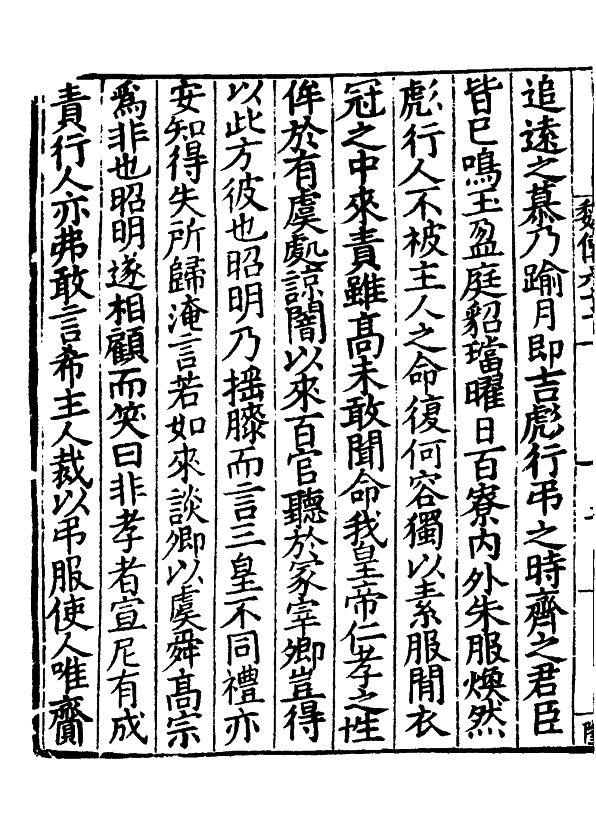 追遠之慕乃踰月即吉彪行弔之時齊之君臣
皆已鳴玉盈庭貂璫曜日百寮內外朱服煥然
彪行人不被主人之命復何容獨以素服閒衣
冠之中來責雖高未敢聞命我皇帝仁孝之性
侔於有虞處諒闇以來百官聽於冢宰卿豈得
以此方彼也昭明乃搖膝而言三皇不同禮亦
安知得失所歸淹言若如來談卿以虞舜高宗
爲非也昭明遂相顧而笑曰非孝者宣尼有成
責行人亦弗敢言希主人裁以弔服使人唯齎